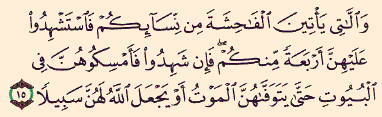 وَالَّٰتِي يَأْتِينَ الْفَاحِشَةَ مِن نِّسَائِكُمْ فَاسْتَشْهِدُوا
عَلَيْهِنَّ أَرْبَعَةً مِّنكُمْ ۖ فَإِن شَهِدُوا فَأَمْسِكُوهُنَّ فِي
الْبُيُوتِ حَتَّىٰ يَتَوَفَّاهُنَّ الْمَوْتُ أَوْ يَجْعَلَ اللَّهُ لَهُنَّ سَبِيلًا ١٥